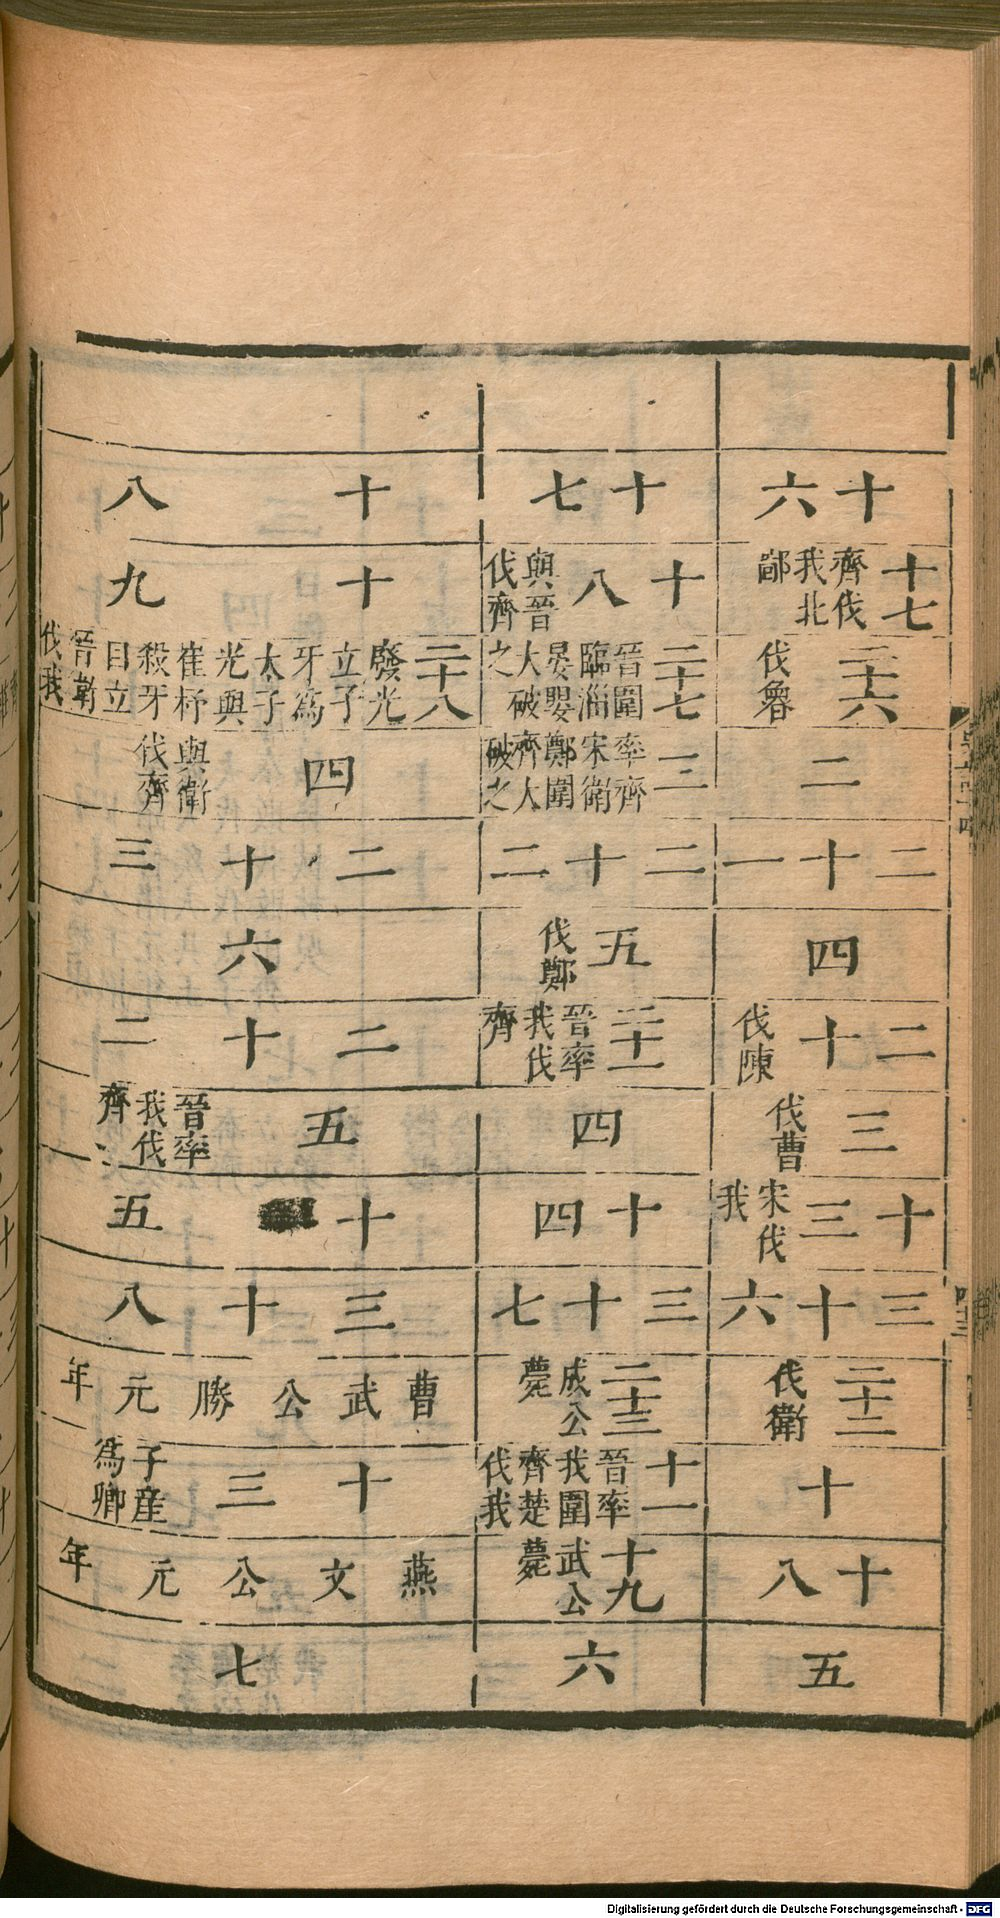 十六
十七 齊伐我北鄙
二十六 伐魯
二
二十一
四
二十 伐陳
三 伐曹
十三 宋伐我
三十六
二十二 伐衛
十
十八
五
十七
十八 與晉伐齊
二十七 晉圍臨淄晏嬰大破之
三 率齊宋衛鄭圍齊大破之
二十二
五 伐鄭
二十一 晉率我伐齊
四
十四
三十七
二十三 成公薨
十一 晉率我圍齊楚伐我
十九 武公薨
六
十八
十九
二十八 廢光立子牙爲太子光與崔杼殺牙自立晉衛伐我
四 與衛伐齊
二十三
六
二十二
五 晉率我伐齊
十五
三十八
曹武公勝元年
十三 子產爲卿
燕文公元年
七
Digitalisierung gefördert durch die Deutsche Forschungsgemeinschaft - DFG